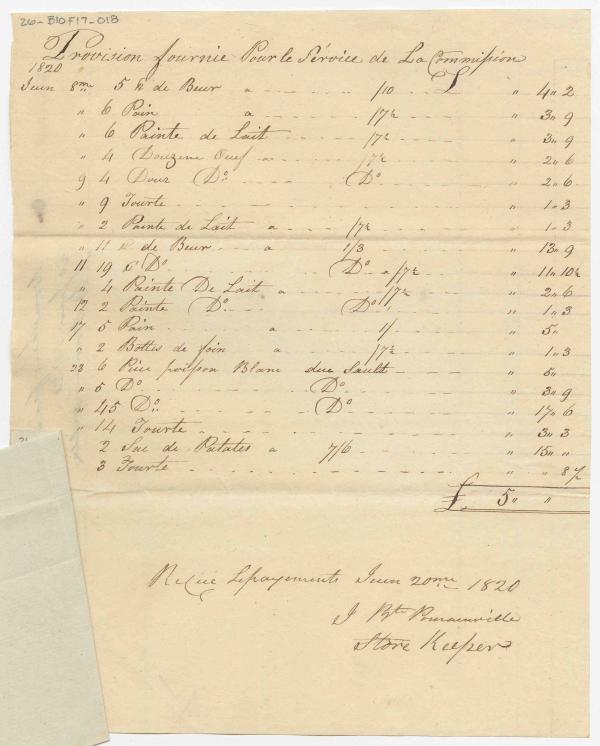 26-B10F17-018
Provision fournie Pour le Service de La Commission
1820
Juin 8me 5 lb de Beur a /10 £ " 4 " 2
" 6 Pain a /7½ " 3 " 9
" 6 Painte de Lait /7½ " 3 " 9
" 4 Douzene Oeuf a /7½ " 2 " 6
9 4 Douz Do Do " 2 " 6
" 9 Tourte " 1 " 3
" 2 Painte de Lait a /7½ " 1 " 3
" 11 lb de Beur a 1/3 " 13 " 9
11 19 lb Do Do a /7½ " 11 " 10½
" 4 Painte De Lait a /7½ " 2 " 6
12 2 Painte Do Do " 1 " 3
17 5 Pain 1/ " 5 "
" 2 Bottes de foin a /7½ " 1 " 3
23 6 Piéce poisson Blanc duc Sault " 5 "
" 5 Do Do " 3 " 9
" 45 Do Do " 17 " 6
" 14 Tourte " 3 " 3
2 Sac de Patates a 7/6 " 15 " "
3 Tourte " " 8½
£ 5 " "
Recue Lepayements Juin 20me 1820
J Bte Romainville
Store Keeper